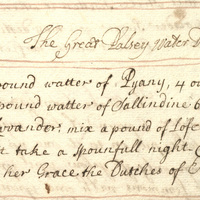 The Great Palsey Water
ound watter of Pyany, 4 ou
ound watter of Sallindine 6
Lavander: mix a pound of Lofe
t take a spounfull night
her Grace the Dutches of